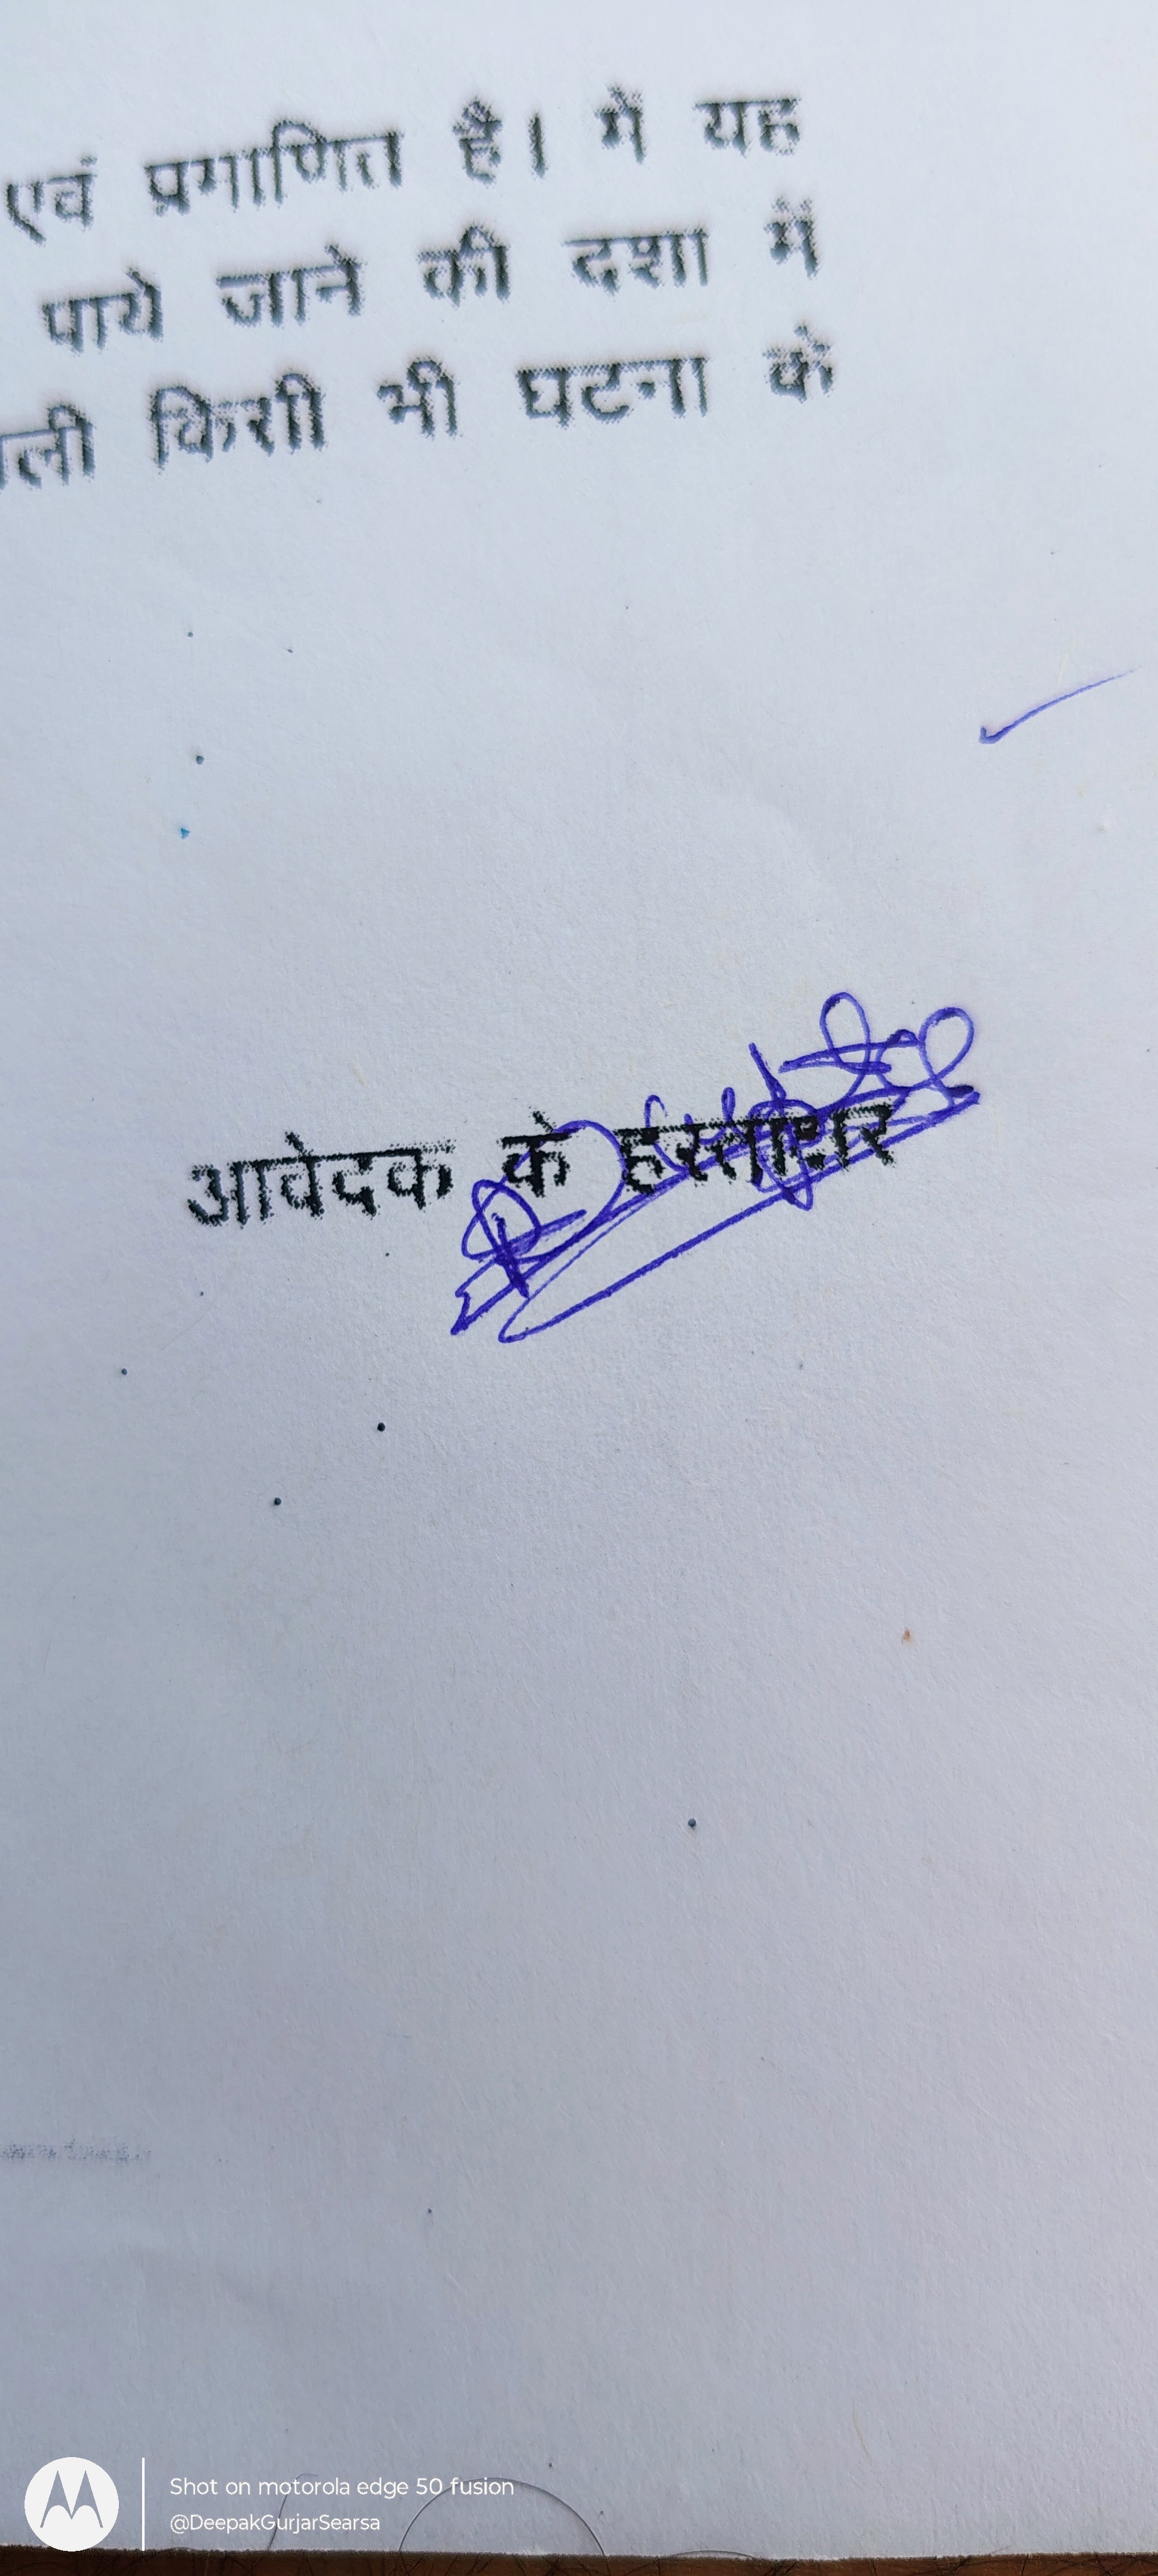 एवं प्रमाणित है। मैं यह
पाये जाने की दशा में
किसी भी घटना के
आवेदक के हस्ताक्षर
Shot on motorola edge 50 fusion
@DeepakGurjarSearsa